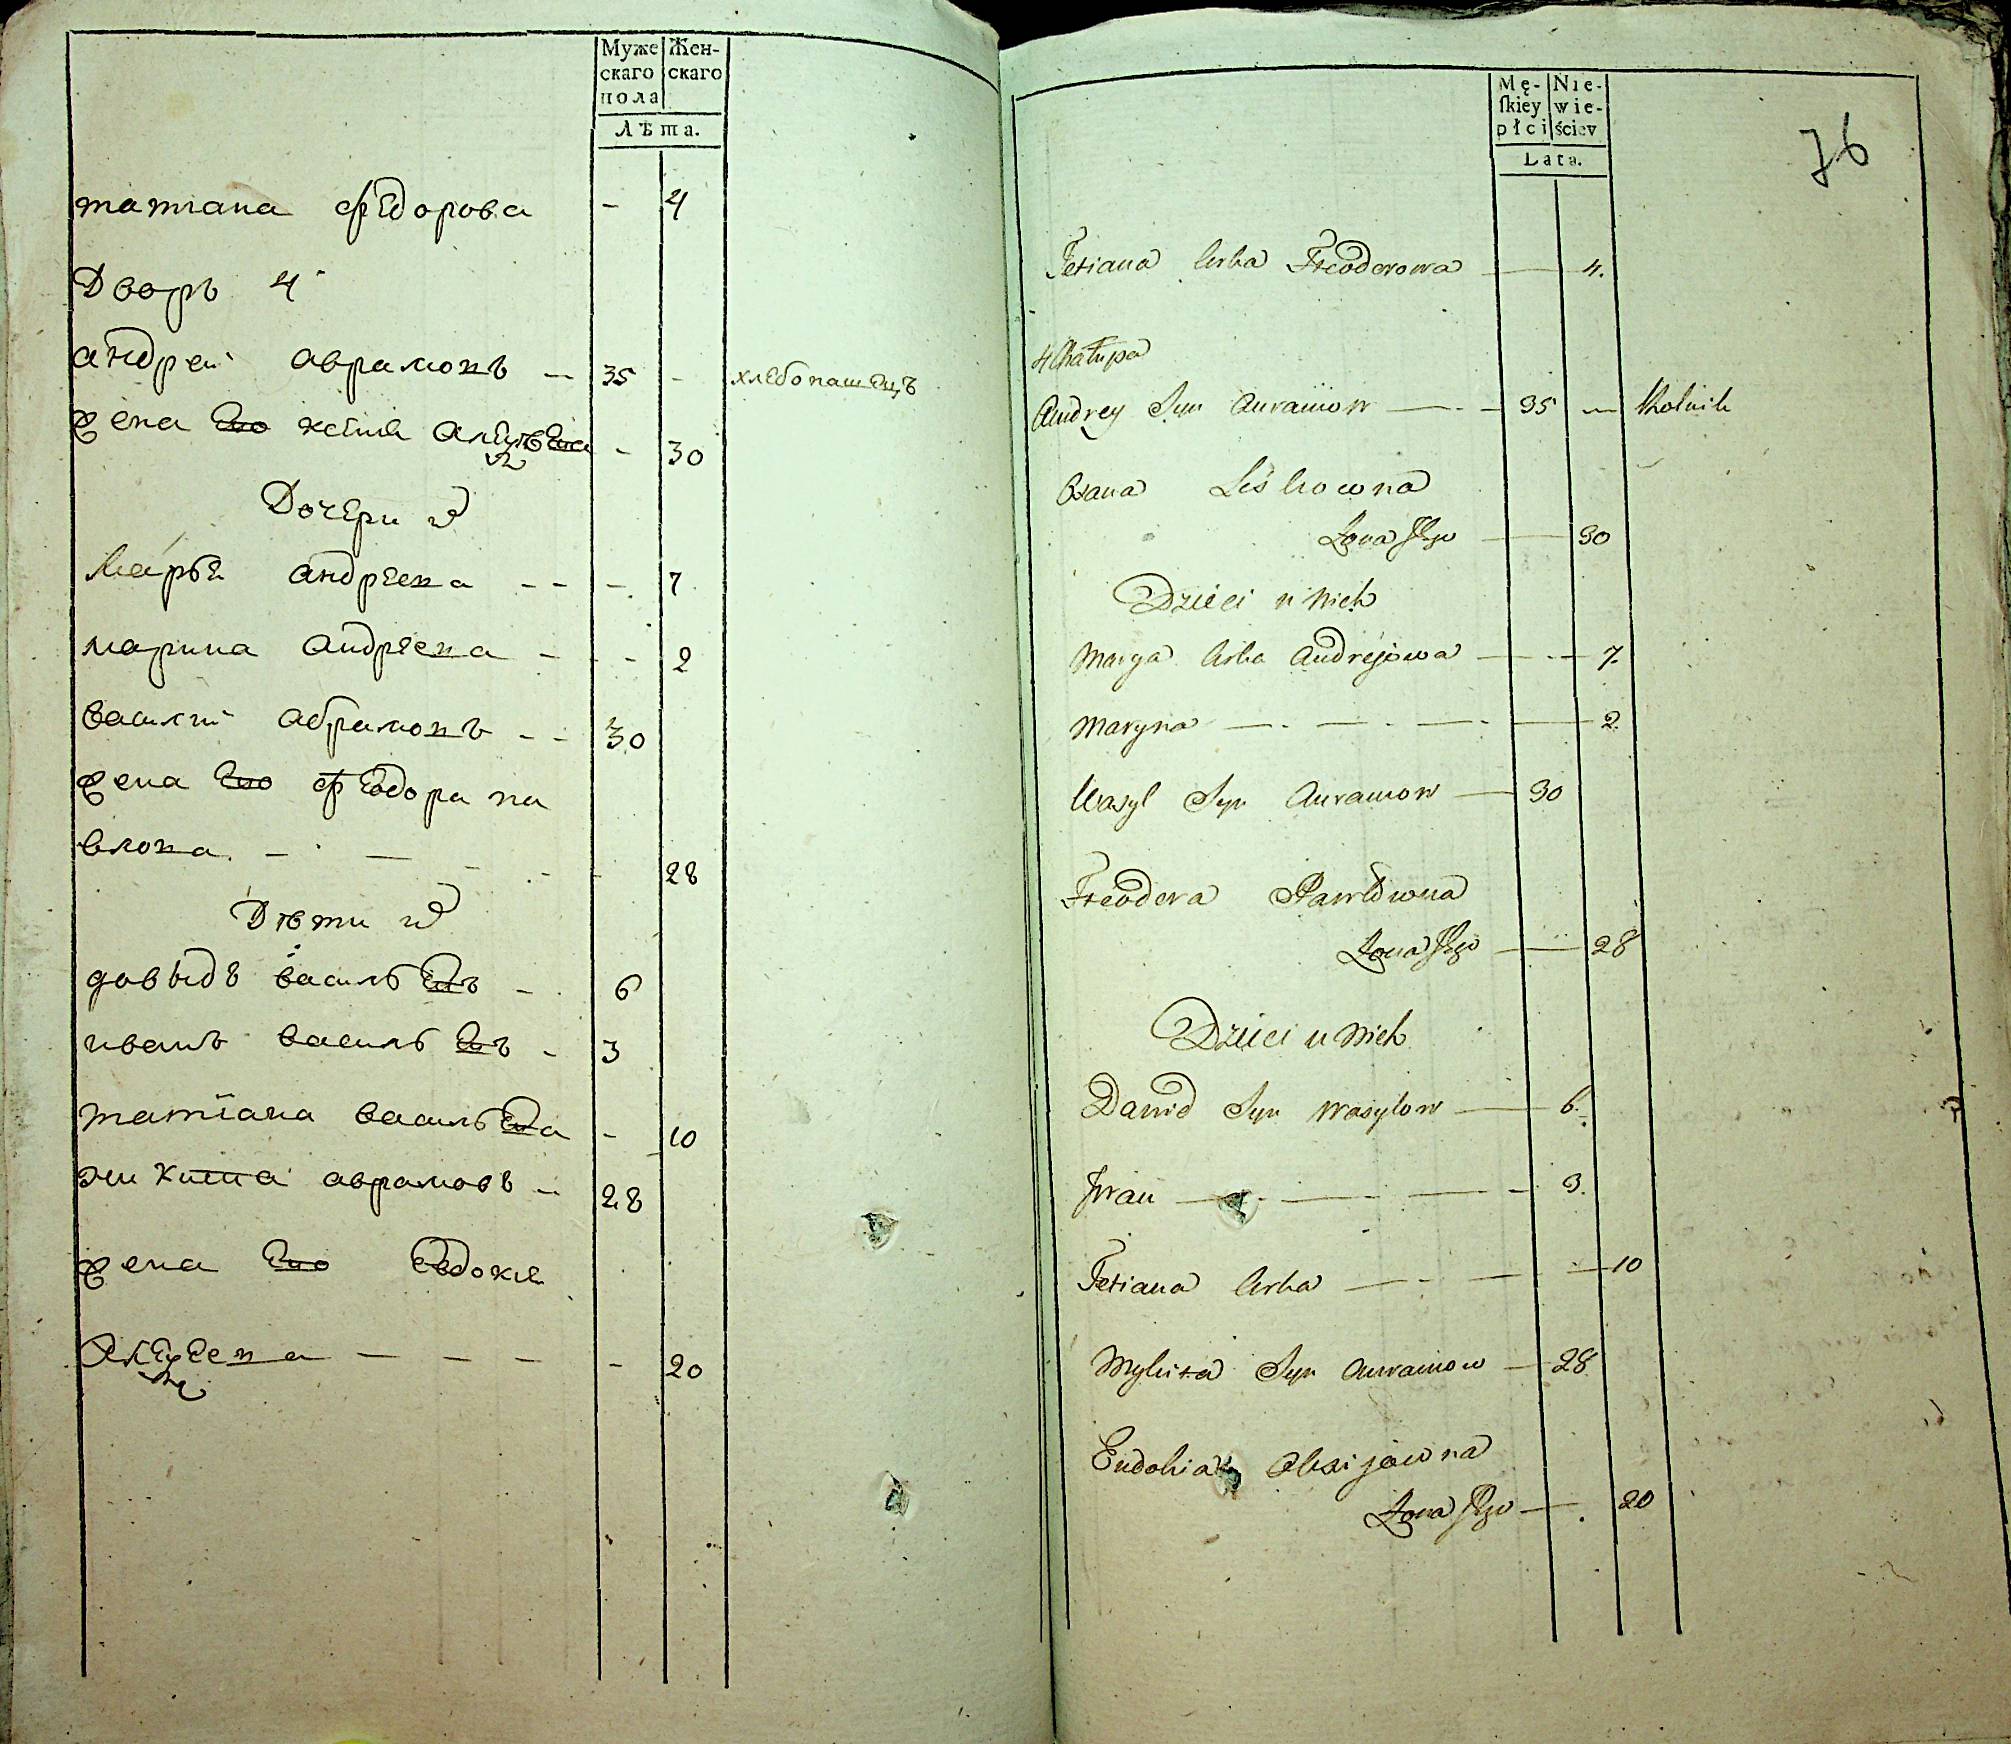 Муже Жен-
скаго скаго
пола
Лѣта.
татиана федорова - 4
Дворъ 4
андреи аврамовъ - 35 - хлебопашецъ
жена его - 30
Дочери
Марья андреева - - - 7
марина андреева - - - 2
василии абрамовъ - - 30
жена его феодора па
влова - - - - 28
Дѣти
давыдъ васильевъ - 6
иванъ васильевъ - 3
татиана васильева - 10
никита аврамовъ - 28
жена его евдокия
Алексеева - - - - 20
Mę- Nie-
ſkiey wie-
płci ściey
Lata.
76
Tetiana Corka Fteodorowa — 4.
4 Chałupa
Andrey Syn Auramow — - - 35 — Rolnik
Leśkowna
Żona Jego — 30
Dzieci u Nich
Marya Corka Andrejowa — - — 7.
Maryna — - — - — - — 2
Wasyl Syn Auramow — 30
Fteodora Pawłowna
Żona Jego — 28
Dzieci u Nich
Dawid Syn Wasylow — 6.
Iwan — - — - — - 3.
Tetiana Corka — - — - — 10
Mykita Syn Auramow — 28
Eudokia Olexijowna
Żona Jego — 20